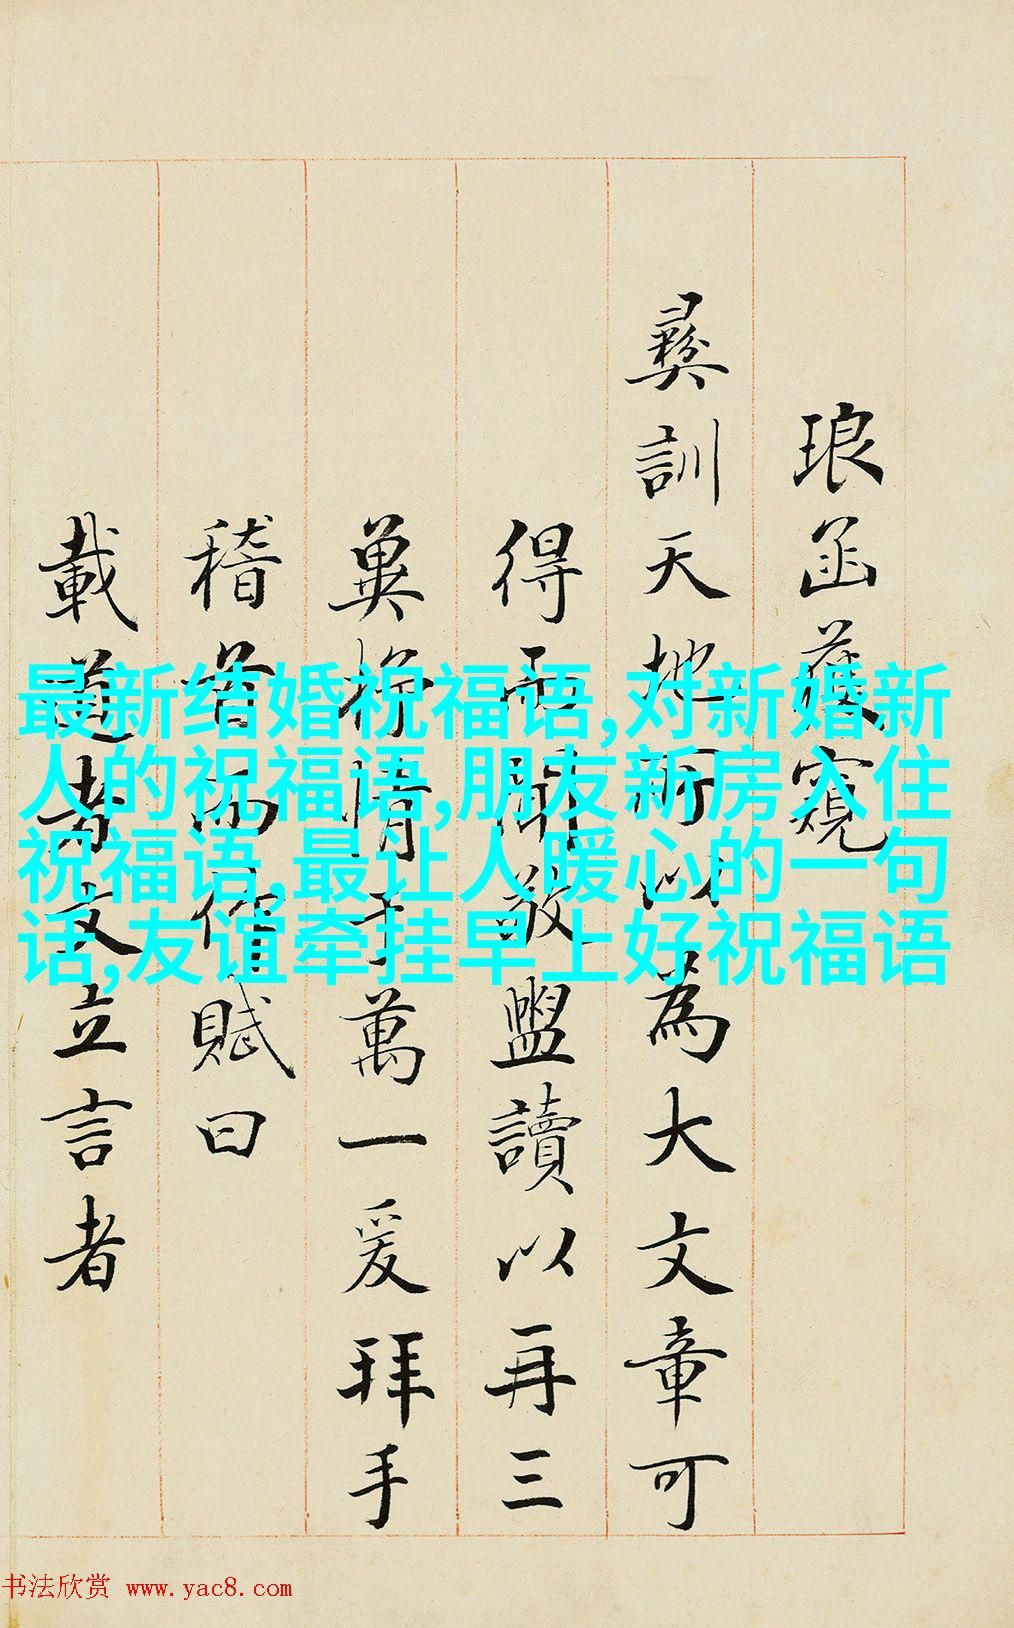 琅函窺
彝訓天地所以為大文章可
得而聞敬盥讀以再三
冀抒情于萬一爰拜手
稽首而作賦曰
載道者文立言者
最新结婚祝福语,对新婚新
人的祝福语,朋友新房入住
祝福语,最让人暖心的一句
话,友谊牵挂早上好祝福语
书法欣赏 www.yac8.com